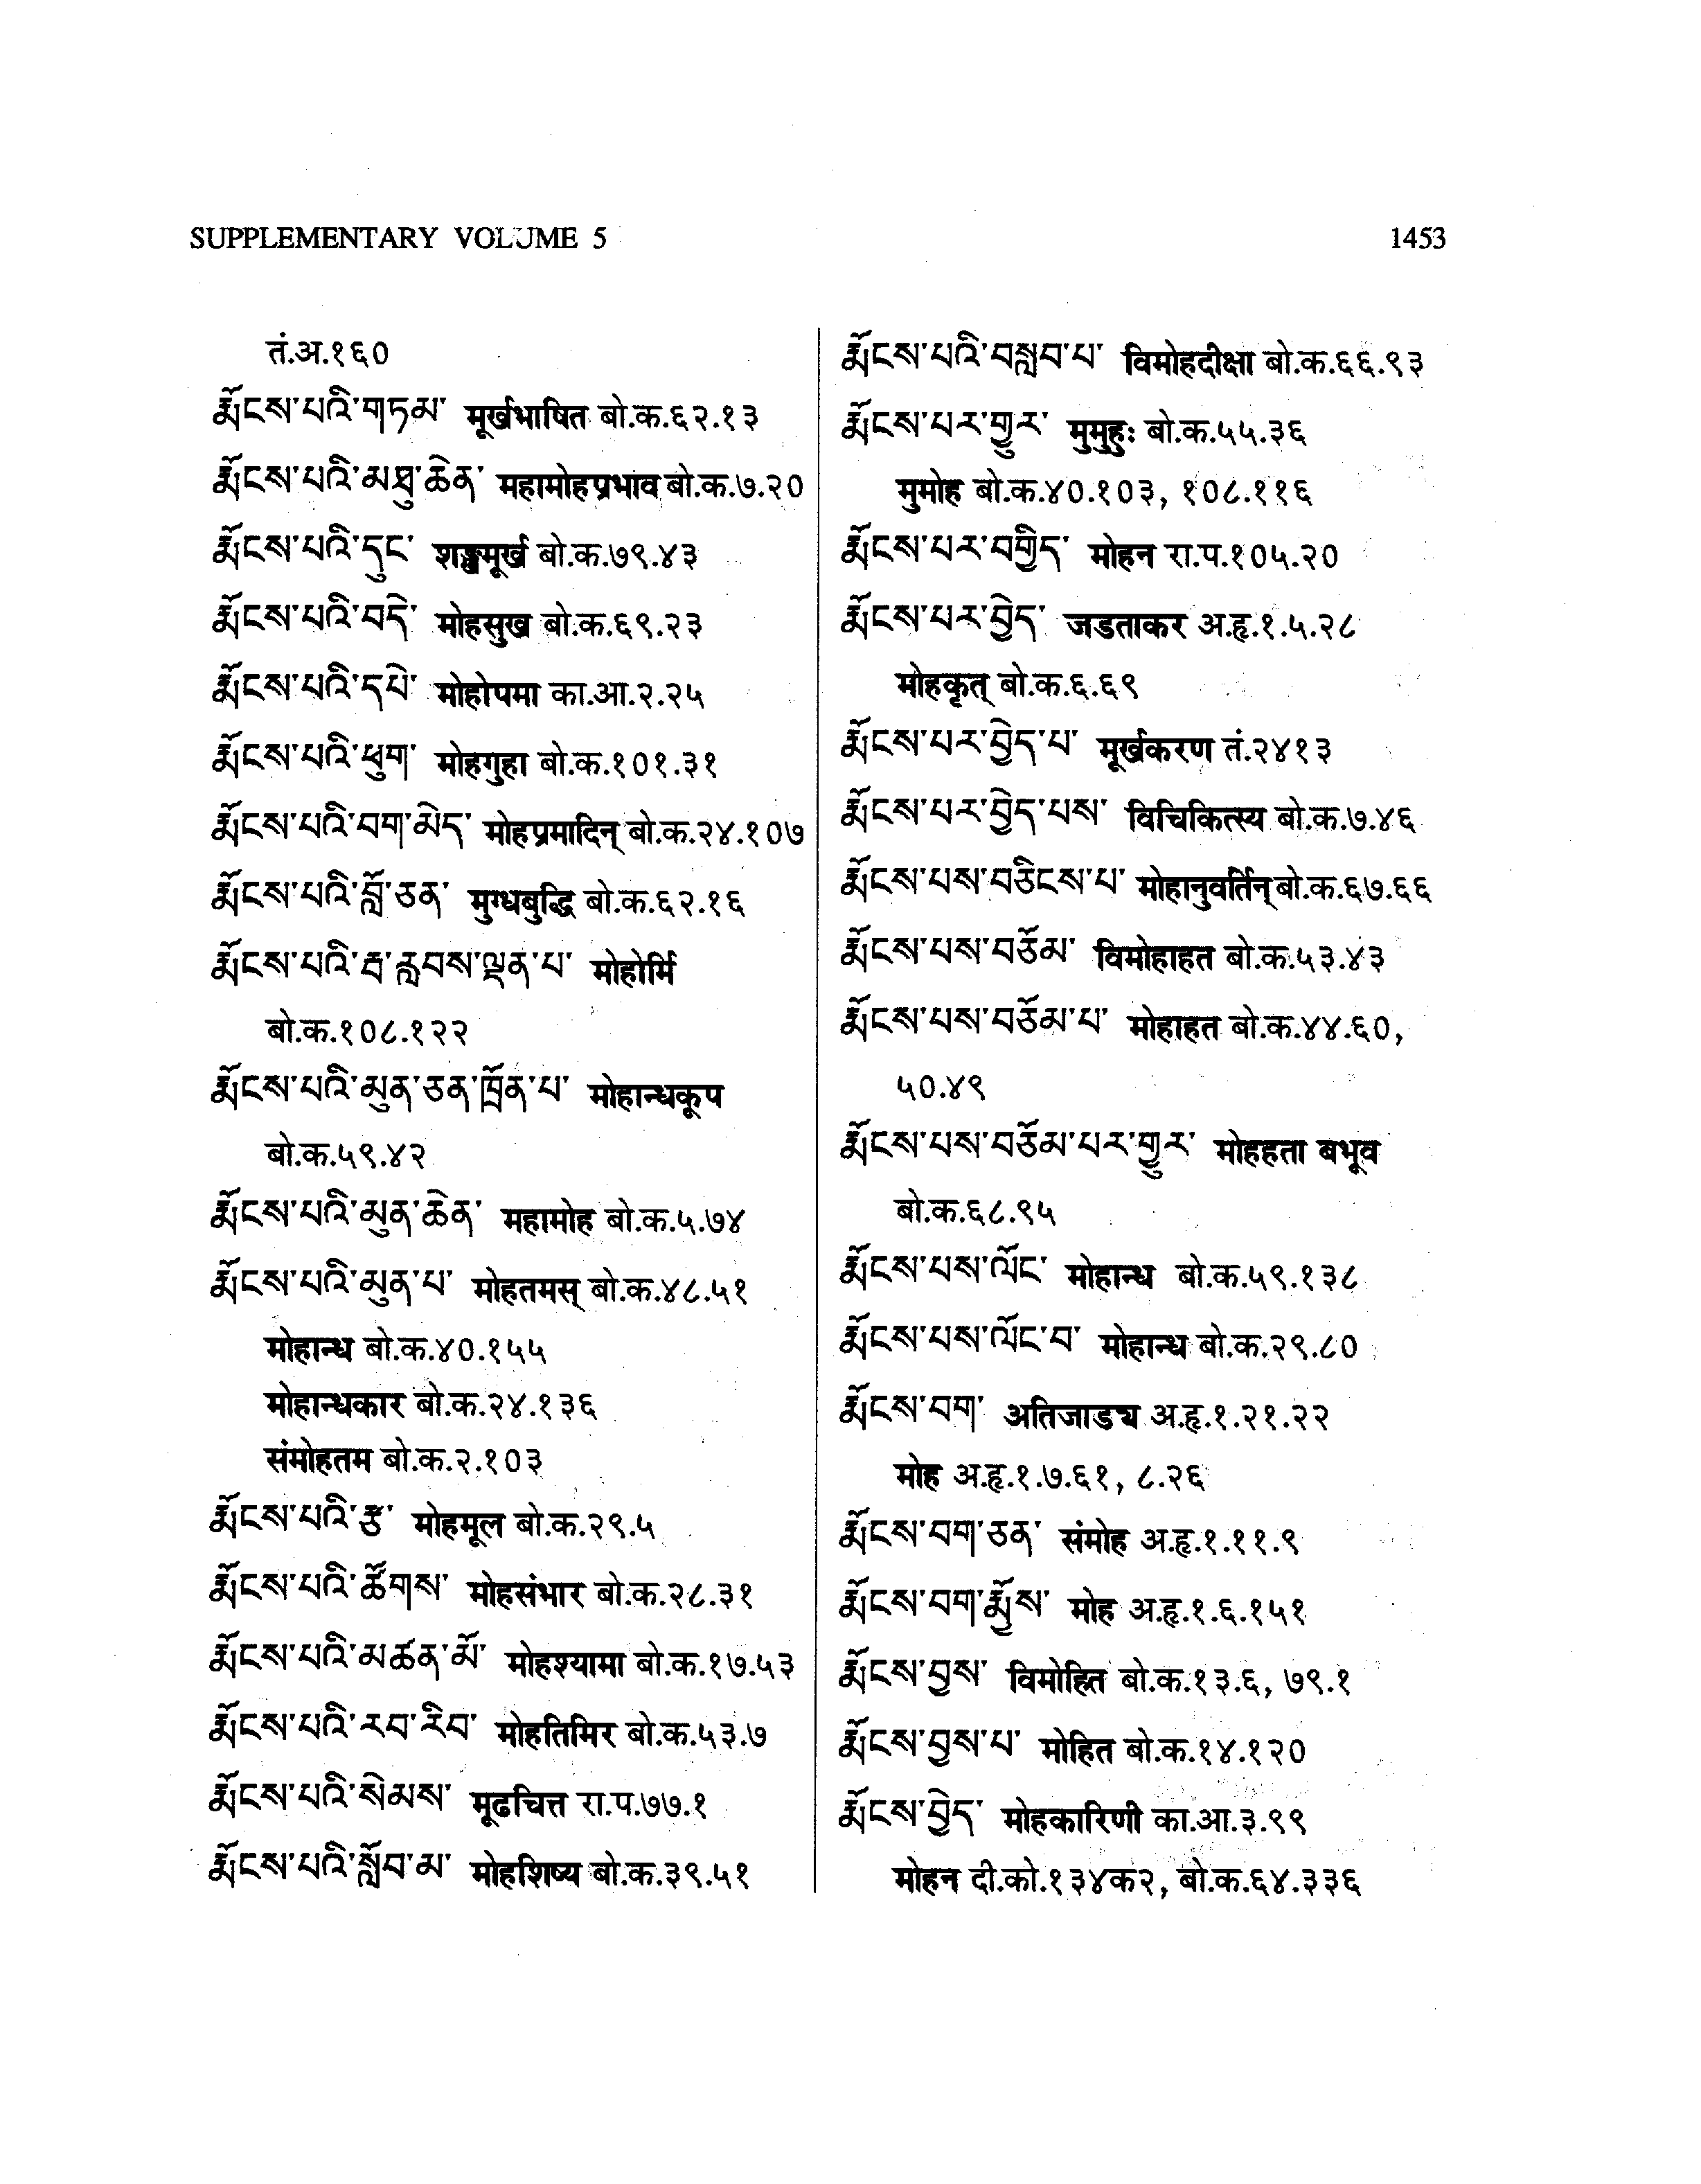 SUPPLEMENTARY VOLUME 5 1453
तं.अ.१६०
རྨོངས་པའི་གཏམ་ मूर्खभाषित बो.क.६२.१३
རྨོངས་པའི་མཐུ་ཆེན་ महामोहप्रभाव बो.क.७.२०
རྨོངས་པའི་དུང་ शङ्खमूर्ख बो.क.७९.४३
རྨོངས་པའི་བདེ་ मोहसुख बो.क.६९.२३
རྨོངས་པའི་དཔེ་ मोहोपमा का.आ.२.२५
རྨོངས་པའི་ཕུག་ मोहगुहा बो.क.१०१.३१
རྨོངས་པའི་བག་མེད་ मोहप्रमादिन् बो.क.२४.१०७
རྨོངས་པའི་བློ་ཅན་ मुग्धबुद्धि बो.क.६२.१६
རྨོངས་པའི་རྦ་རླབས་ལྡན་པ་ मोहोर्मि
बो.क.१०८.१२२
རྨོངས་པའི་མུན་ཅན་ཁྲོན་པ་ मोहान्धकूप
बो.क.५९.४२
རྨོངས་པའི་མུན་ཆེན་ महामोह बो.क.५.७४
རྨོངས་པའི་མུན་པ་ मोहतमस् बो.क.४८.५१
मोहान्ध बो.क.४०.१५५
मोहान्धकार बो.क.२४.१३६
संमोहतम बो.क.२.१०३
རྨོངས་པའི་རྩ་ मोहमूल बो.क.२९.५
རྨོངས་པའི་ཚོགས་ मोहसंभार बो.क.२८.३१
རྨོངས་པའི་མཚན་མོ་ मोहश्यामा बो.क.१७.५३
རྨོངས་པའི་རབ་རིབ་ मोहतिमिर बो.क.५३.७
རྨོངས་པའི་སེམས་ मूढचित्त रा.प.७७.१
རྨོངས་པའི་སློབ་མ་ मोहशिष्य बो.क.३९.५१
རྨོངས་པའི་བསླབ་པ་ विमोहदीक्षा बो.क.६६.९३
རྨོངས་པར་གྱུར་ मुमुहुः बो.क.५५.३६
मुमोह बो.क.४०.१०३, १०८.११६
རྨོངས་པར་བགྱིད་ मोहन रा.प.१०५.२०
རྨོངས་པར་བྱེད་ जडताकर अ.हृ.१.५.२८
मोहकृत् बो.क.६.६९
རྨོངས་པར་བྱེད་པ་ मूर्खकरण तं.२४१३
རྨོངས་པར་བྱེད་པས་ विचिकित्स्य बो.क.७.४६
རྨོངས་པས་བཅིངས་པ་ मोहानुवर्तिन् बो.क.६७.६६
རྨོངས་པས་བཅོམ་ विमोहाहत बो.क.५३.४३
རྨོངས་པས་བཅོམ་པ་ मोहाहत बो.क.४४.६०,
५०.४९
རྨོངས་པས་བཅོམ་པར་གྱུར་ मोहहता बभूव
बो.क.६८.९५
རྨོངས་པས་ལོང་ मोहान्ध बो.क.५९.१३८
རྨོངས་པས་ལོང་བ་ मोहान्ध बो.क.२९.८०
རྨོངས་བག་ अतिजाड्य अ.हृ.१.२१.२२
मोह अ.हृ.१.७.६१, ८.२६
རྨོངས་བག་ཅན་ संमोह अ.हृ.१.११.९
རྨོངས་བག་མྱོས་ मोह अ.हृ.१.६.१५१
རྨོངས་བྱས་ विमोहित बो.क.१३.६, ७९.१
རྨོངས་བྱས་པ་ मोहित बो.क.१४.१२०
རྨོངས་བྱེད་ मोहकारिणी का.आ.३.९९
मोहन दी.को.१३४क२, बो.क.६४.३३६